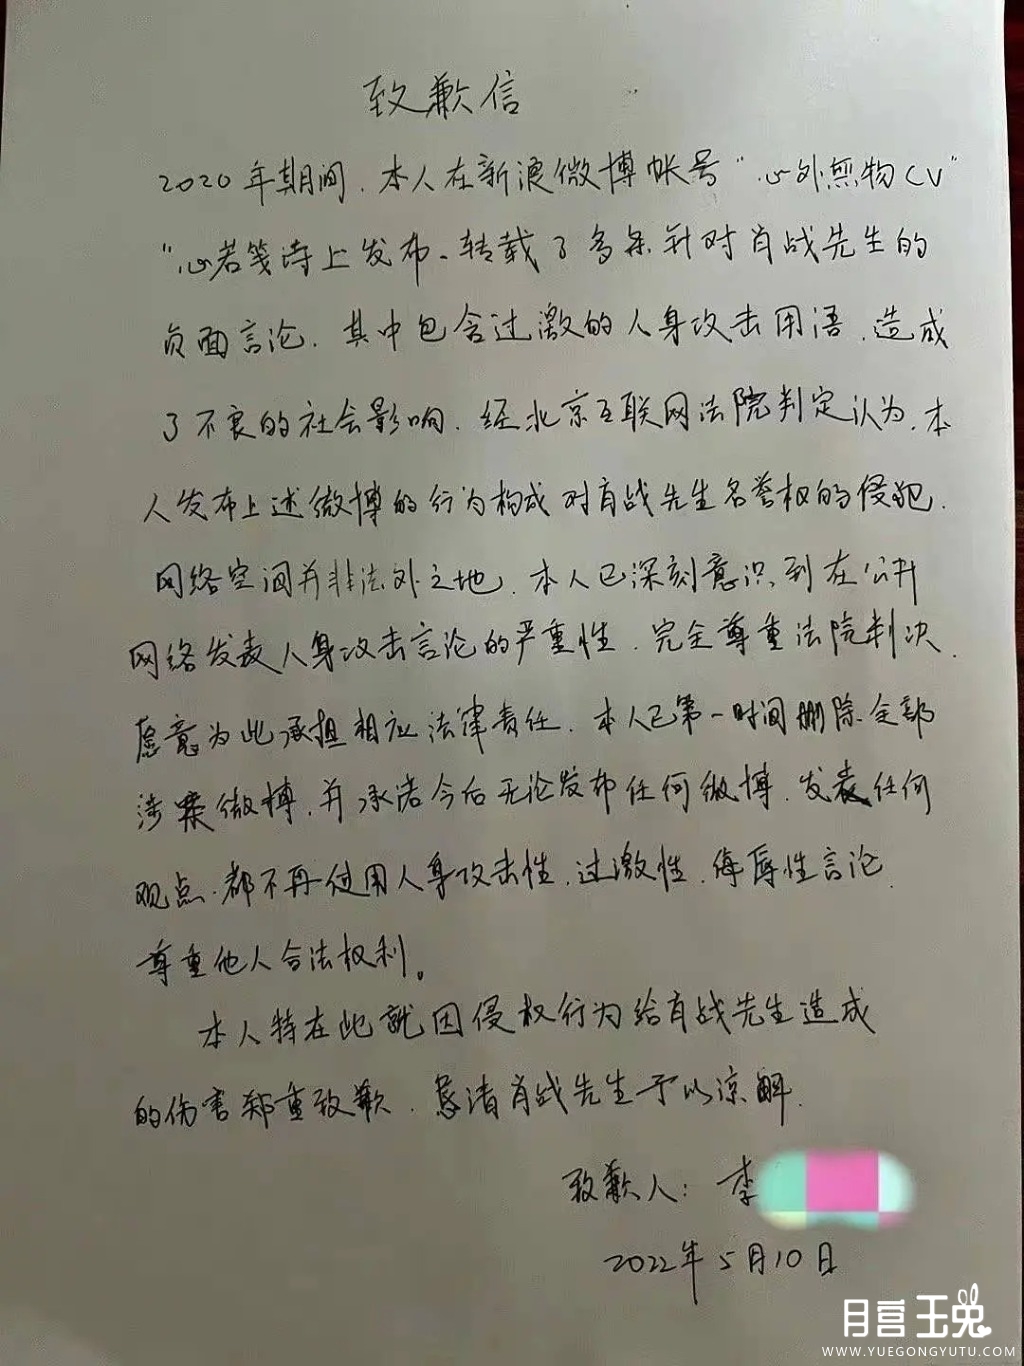 致歉信
2020年期间，本人在新浪微博帐号“心外無物CV”
“心若笺诗上发布、转载了多条针对肖战先生的
负面言论，其中包含过激的人身攻击用语，造成
了不良的社会影响，经北京互联网法院判定认为，本
人发布上述微博的行为构成对肖战先生名誉权的侵犯。
网络空间并非法外之地，本人已深刻意识到在公开
网络发表人身攻击言论的严重性，完全尊重法院判决，
愿意为此承担相应法律责任，本人已第一时间删除全部
涉案微博，并承诺今后无论发布任何微博、发表任何
观点，都不再使用人身攻击性、过激性、侮辱性言论，
尊重他人合法权利。
本人特在此就因侵权行为给肖战先生造成
的伤害郑重致歉，恳请肖战先生予以谅解。
致歉人：李
2022年5月10日
月宫玉兔
WWW.YUEGONGYUTU.COM